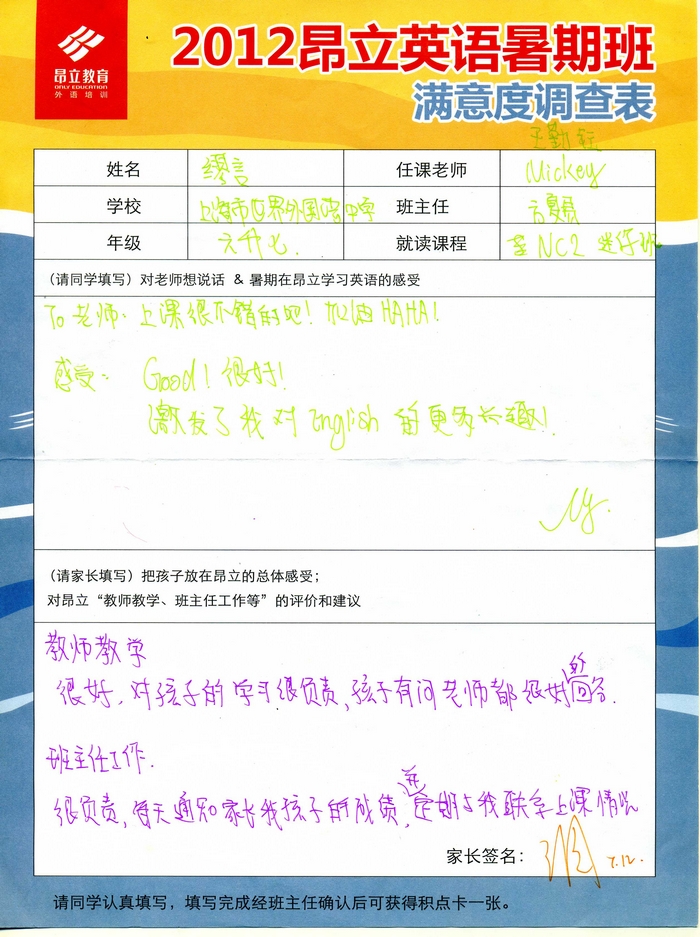 昂立教育
ONLY EDUCATION
外语培训
2012昂立英语暑期班
满意度调查表
姓名 缪言 任课老师 王勤 Mickey
学校 上海市世界外国语中学 班主任 方
年级 六升七. 就读课程 NC2 迷你班
(请同学填写) 对老师想说话 & 暑期在昂立学习英语的感受
To 老师: 上课很不错的吧! 加油 HAHA!
感受: Good! 很好!
激发了我对 English 的更多兴趣!
(请家长填写) 把孩子放在昂立的总体感受;
对昂立“教师教学、班主任工作等”的评价和建议
教师教学
很好, 对孩子的学习很负责, 孩子有问老师都很好的回答.
班主任工作.
很负责, 每天通知家长我孩子的成绩, 并定期与我联系上课情况
家长签名: 7.12.
请同学认真填写，填写完成经班主任确认后可获得积点卡一张。